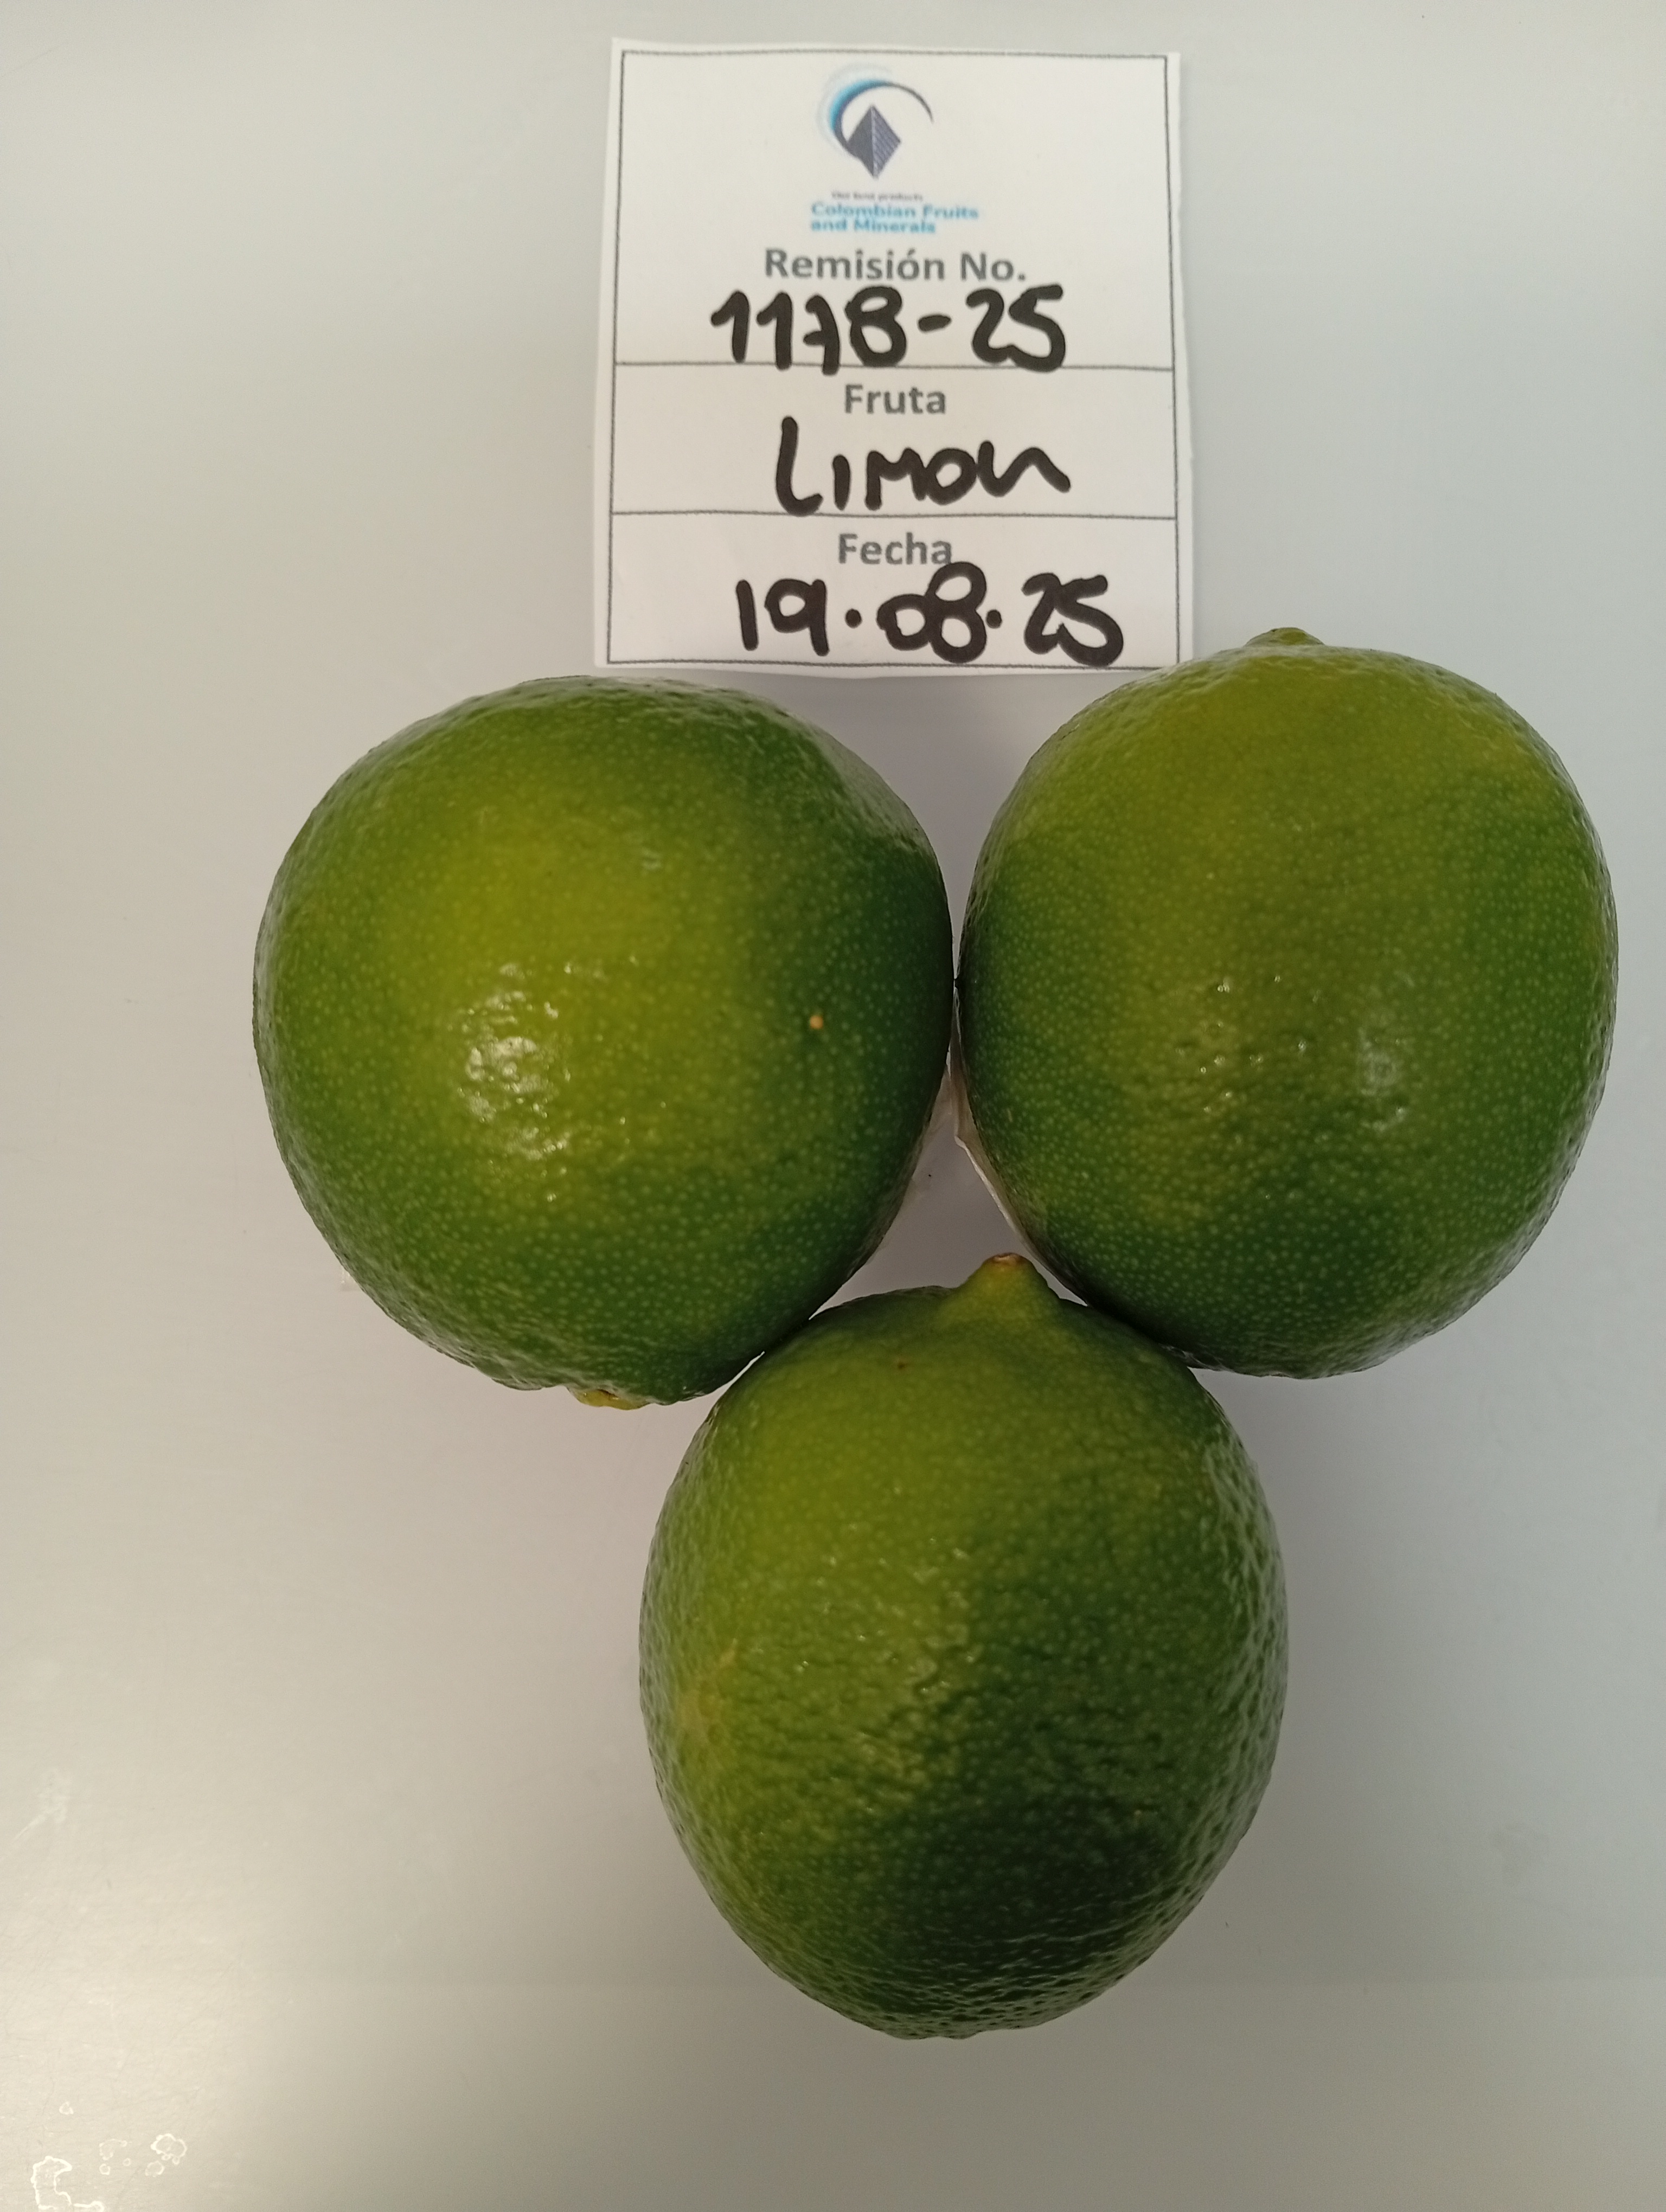 Our best products
Colombian Fruits
and Minerals
Remisión No.
1178-25
Fruta
Limon
Fecha
19.08.25